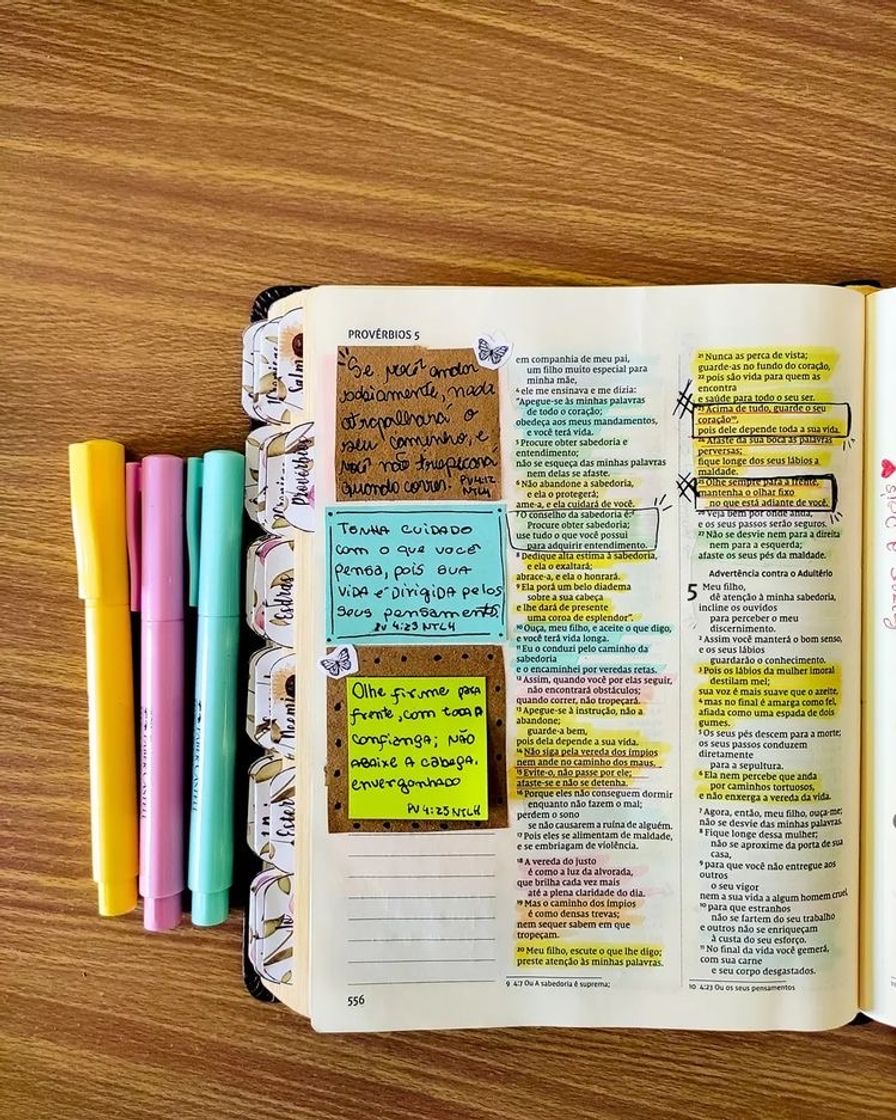 PROVÉRBIOS 5
Se você andar
sabiamente, nada
atrapalhará o
seu caminho, e
você não tropeçará
quando correr. PV 4:12
NTLH
TENHA CUIDADO
com o que você
pensa, pois sua
vida é dirigida pelos
seus pensamentos.
PV 4:23 NTLH
Olhe firme para
frente, com toda
confiança; não
abaixe a cabeça,
envergonhado
PV 4:25 NTLH
556
em companhia de meu pai,
um filho muito especial para
minha mãe,
4 ele me ensinava e me dizia:
"Apegue-se às minhas palavras
de todo o coração;
obedeça aos meus mandamentos,
e você terá vida.
5 Procure obter sabedoria e
entendimento;
não se esqueça das minhas palavras
nem delas se afaste.
6 Não abandone a sabedoria,
e ela o protegerá;
ame-a, e ela cuidará de você.
7 O conselho da sabedoria é:9
Procure obter sabedoria;
use tudo o que você possui
para adquirir entendimento.
8 Dedique alta estima à sabedoria,
e ela o exaltará;
abrace-a, e ela o honrará.
9 Ela porá um belo diadema
sobre a sua cabeça
e lhe dará de presente
uma coroa de esplendor".
10 Ouça, meu filho, e aceite o que digo,
e você terá vida longa.
11 Eu o conduzi pelo caminho da
sabedoria
e o encaminhei por veredas retas.
12 Assim, quando você por elas seguir,
não encontrará obstáculos;
quando correr, não tropeçará.
13 Apegue-se à instrução, não a
abandone;
guarde-a bem,
pois dela depende a sua vida.
14 Não siga pela vereda dos ímpios
nem ande no caminho dos maus.
15 Evite-o, não passe por ele;
afaste-se e não se detenha.
16 Porque eles não conseguem dormir
enquanto não fazem o mal;
perdem o sono
se não causarem a ruína de alguém.
17 Pois eles se alimentam de maldade,
e se embriagam de violência.
18 A vereda do justo
é como a luz da alvorada,
que brilha cada vez mais
até a plena claridade do dia.
19 Mas o caminho dos ímpios
é como densas trevas;
nem sequer sabem em que
tropeçam.
20 Meu filho, escute o que lhe digo;
preste atenção às minhas palavras.
9 4:7 Ou A sabedoria é suprema;
21 Nunca as perca de vista;
guarde-as no fundo do coração,
22 pois são vida para quem as
encontra
e saúde para todo o seu ser.
23 Acima de tudo, guarde o seu
coração10,
pois dele depende toda a sua vida.
24 Afaste da sua boca as palavras
perversas;
fique longe dos seus lábios a
maldade.
25 Olhe sempre para a frente,
mantenha o olhar fixo
no que está adiante de você.
26 Veja bem por onde anda,
e os seus passos serão seguros.
27 Não se desvie nem para a direita
nem para a esquerda;
afaste os seus pés da maldade.
Advertência contra o Adultério
5 Meu filho,
dê atenção à minha sabedoria,
incline os ouvidos
para perceber o meu
discernimento.
2 Assim você manterá o bom senso,
e os seus lábios
guardarão o conhecimento.
3 Pois os lábios da mulher imoral
destilam mel;
sua voz é mais suave que o azeite,
4 mas no final é amarga como fel,
afiada como uma espada de dois
gumes.
5 Os seus pés descem para a morte;
os seus passos conduzem
diretamente
para a sepultura.
6 Ela nem percebe que anda
por caminhos tortuosos,
e não enxerga a vereda da vida.
7 Agora, então, meu filho, ouça-me;
não se desvie das minhas palavras.
8 Fique longe dessa mulher;
não se aproxime da porta de sua
casa,
9 para que você não entregue aos
outros
o seu vigor
nem a sua vida a algum homem cruel,
10 para que estranhos
não se fartem do seu trabalho
e outros não se enriqueçam
à custa do seu esforço.
11 No final da vida você gemerá,
com sua carne
e seu corpo desgastados.
10 4:23 Ou os seus pensamentos
Salm
Provérbios
Esdras
Neemi
Ester
FABER-CASTELL